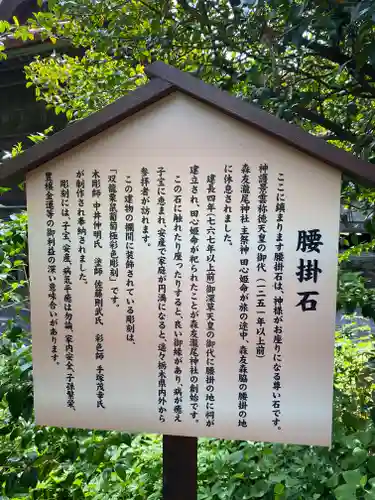 腰掛石
ここに鎮まります腰掛石は、神様がお座りになる尊い石です。
神護景雲称徳天皇の御代（一二五一年以上前）
森友瀧尾神社・主祭神 田心姫命が旅の途中、森友森脇の腰掛の地
に休息されました。
建長四年（七六七年以上前）御深草天皇の御代に腰掛の地に祠が
建立され、田心姫命が祀られたことが森友瀧尾神社の創始です。
この石に触れたり座ったりすると、良い御縁があり、病が癒え
子宝に恵まれ、安産で家庭が円満になると、遠々栃木県内外から
参拝者が訪れます。
この建物の欄間に装飾されている彫刻は、
「双龍栗鼠葡萄極彩色彫刻」です。
木彫師 中井伸明氏 塗師 佐藤剛武氏 彩色師 手塚茂幸氏
が制作され奉納されました。
彫刻には、子宝、安産、病気平癒は勿論、家内安全、子孫繁栄、
豊穣、金運等の御利益の深い意味合いがあります。